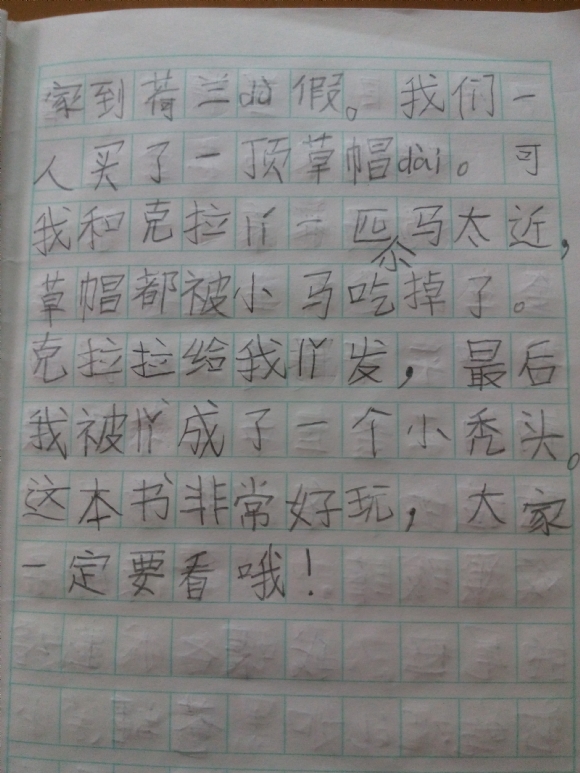 家到荷兰dù假。我们一
人买了一顶草帽dài。可
我和克拉lí一匹小马太近,
草帽都被小马吃掉了。
克拉拉给我lǐ发,最后
我被lǐ成了一个小秃头。
这本书非常好玩,大家
一定要看哦!